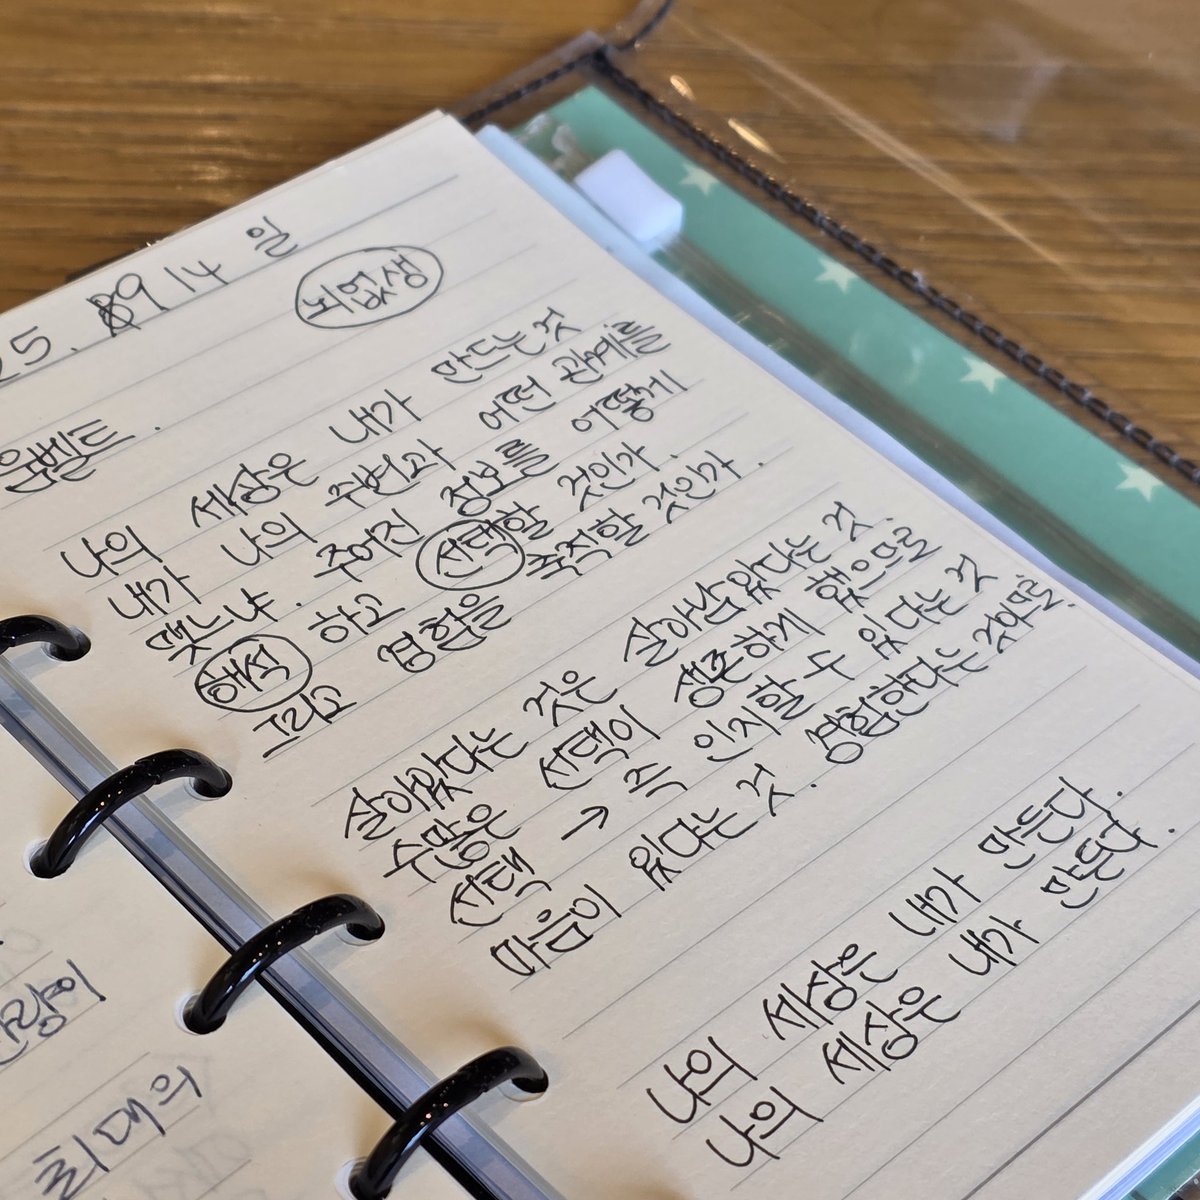 25. 9 14 일
뇌없생
움벨트.
나의 세상은 내가 만드는 것
내가 나의 주변과 어떤 관계를
맺느냐. 주어진 정보를 어떻게
해석 하고 선택할 것인가.
그리고 경험을 축적할 것인가.
살아있다는 것은 살아남았다는 것
수많은 선택이 생존하게 했으므로
선택 → 즉 인지할 수 있다는 것
마음이 있다는 것. 경험한다는 것이므로.
나의 세상은 내가 만든다.
나의 세상은 내가 만든다.
최대의